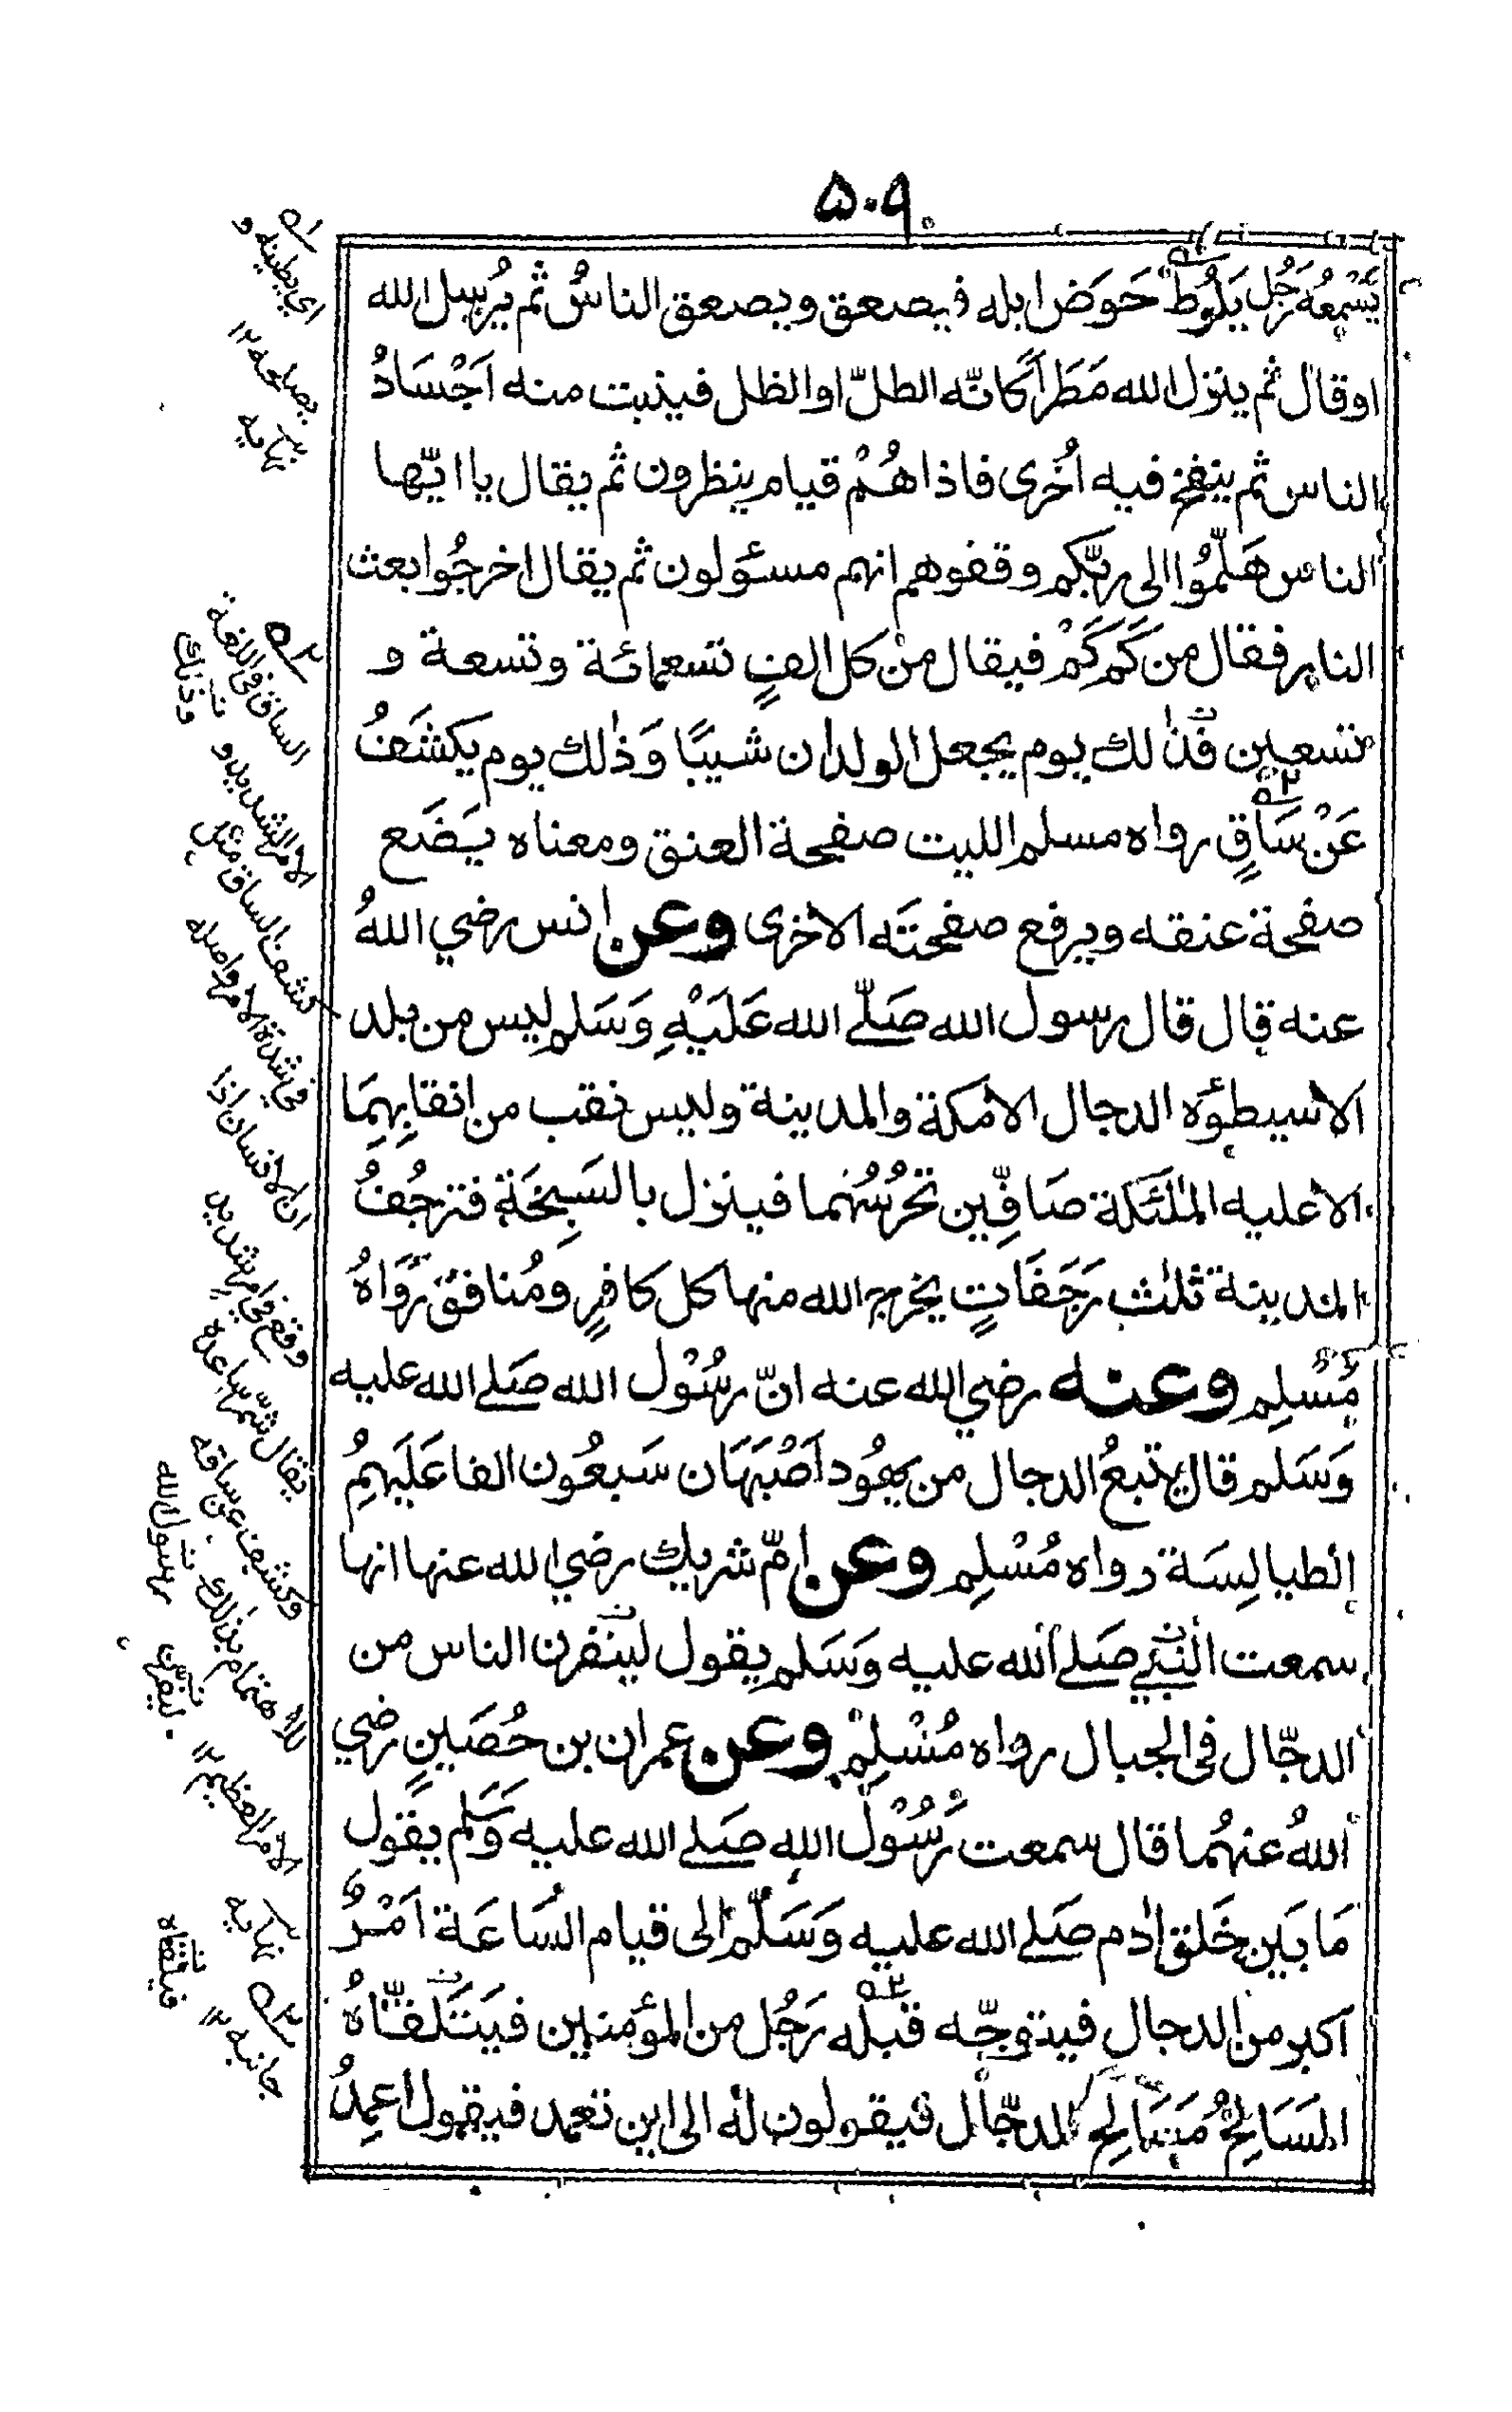 ۵۰۹
يَسْمعُه رَجُل يَلُوط حَوَض ابله فيصعق ويصعق الناسُ ثم يُرسِل الله
او قال ثم ينزل الله مَطَراً كانّه الطلّ او الظل فينبت منه اَجْسَادُ
الناس ثم ينفخ فيه اُخرٰى فاذا هُمْ قيام ينظرون ثم يقال يا ايّها
الناس هَلمُّوا الى ربّكم وقفوهم انهم مسئولون ثم يقال اخرجُوا بعث
النار فقال من كَم كَمْ فيقال من كل الفٍ تسعمائة وتسعة و
تسعين فذٰلك يوم يجعل الولدان شيبًا وَذٰلك يوم يكشَفُ
عَنْ سَاقٍ رواه مسلم الليت صفيحة العنق ومعناه يَضَع
صفحة عنقه ويرفع صفحتَه الاخرى وعن انس رضي اللهُ
عنه قال قال رسول الله صَلّے الله عَلَيْهِ وَسَلم ليس من بلد
الا سيطؤه الدجال الا مكة والمدينة وليس نقب من انقابِهِمَا
الا عليه الملٰئكة صَافّين تحرُسُهما فينزل بالسَبِخَة فترجُفُ
المدينة ثلٰث رَجَفَاتٍ يخرج الله منها كل كافرٍ ومُنافق رَوَاهُ
مُسْلِم وعنه رضي الله عنه انّ رسُوْل الله صَلے الله عليه
وَسَلم قال يتبعُ الدجال من يهُود اَصْبَهَان سَبعُون الفا عَلَيهِمُ
الطيالِسَة رواه مُسْلِم وعن امّ شريك رضي الله عنها انها
سمعت النَبّي صَلے الله عليه وَسَلم يقول لينفرن الناس من
الدجّال فى الجبال رواه مُسْلِمْ وعن عمران بن حُصَينٍ رضي
اللهُ عنهُما قال سمعت رَسُوْلَ الله صَلے الله عليه وَسَلم يقول
مَا بَين خَلق اٰدم صَلے الله عليه وَسَلّم الى قيام السَاعَة اَمْرٌ
اكبر من الدجالِ فيتوجّه قبله رَجُل من المؤمنين فيَتَلقّاهُ
المَسَالِحُ مَسَالح الدجّال فيقولون له الى اين تعمد فيقول اعمِدُ
۱
اي يطينه و
يصلحه ۱۲
نهايه
۲
الساق فى اللغة
وذلك
الامر الشديد و
كشف الساق مثل
فى شدة الامر واصله
ان الانسان اذا
وقع فى امر شديد
يقال شمّر ساعده
وكشف عن ساقه
للاهتمام بذلك
رسول الله
الامر العظيم ۱۲
ليفرن
نهايه
فيلقاه
۳
جانبه ۱۲